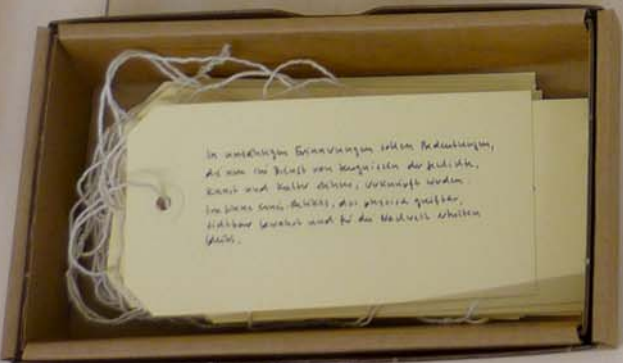 In unzähligen Erinnerungen sollen Bedeutungen,
die nun im Dienst von Zeugnissen der
Kunst und Kultur stehen, verknüpft werden
eines Objektes, das physisch greifbar,
sichtbar bewahrt und für die Nachwelt erhalten
bleibt.